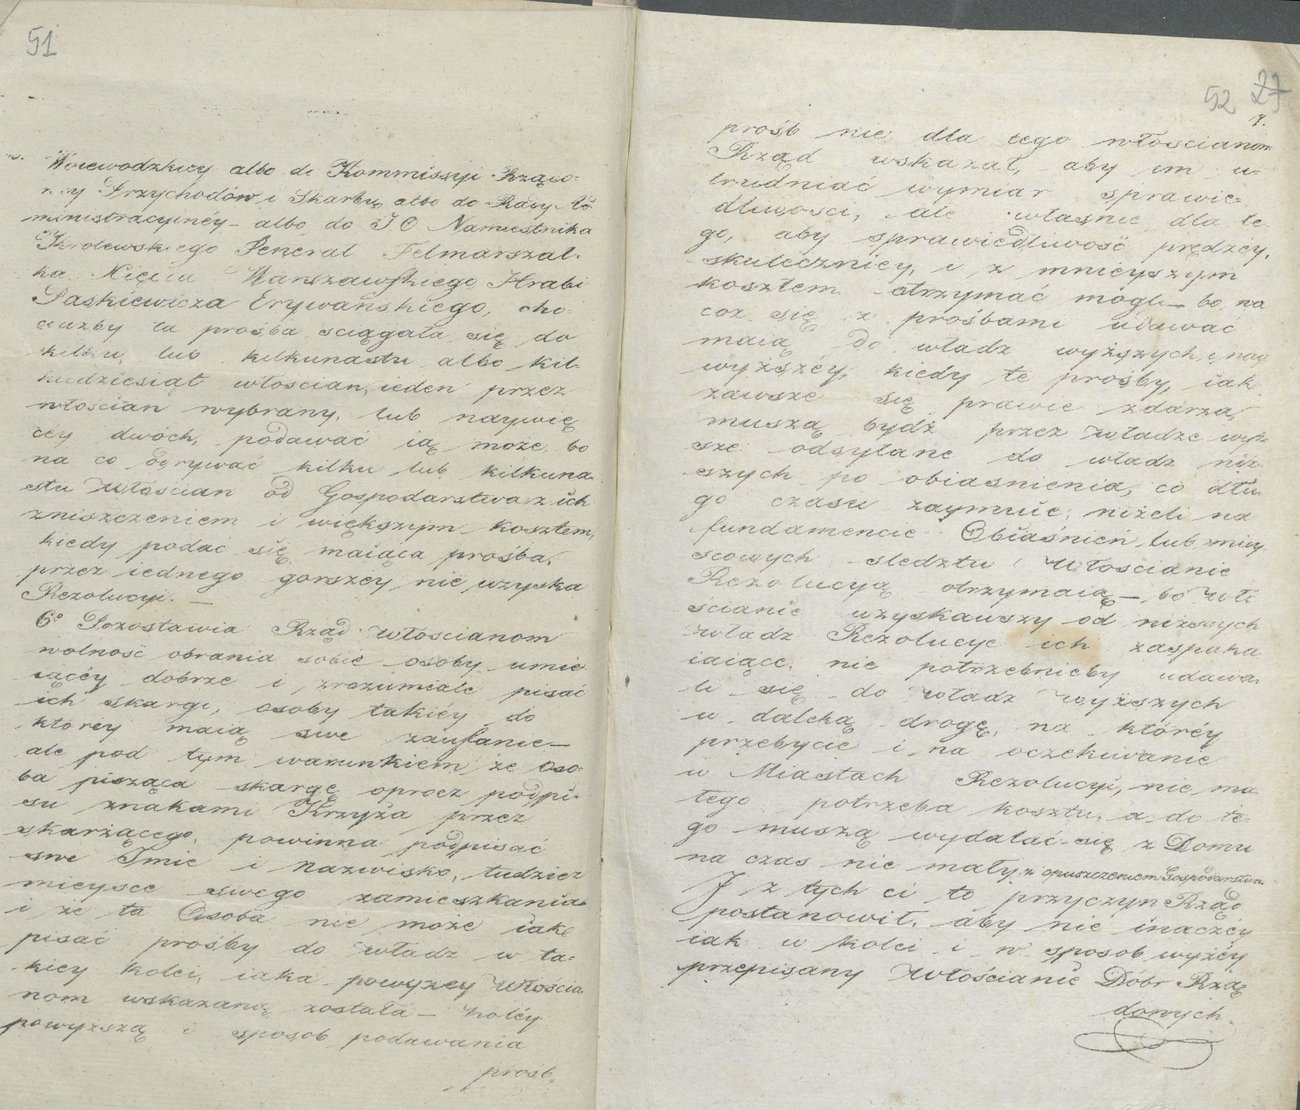 51
Woiewodzkiey albo do Kommissyi Rządo-
wey Przychodów i Skarbu, albo do Rady Ad
ministracyinéy – albo do JO Namiestnika
Krolewskiego General Felmarszał-
ka Xięcia Warszawskiego Hrabi
Paskiewicza Erywańskiego, cho-
ciażby ta prośba sciągała się do
kilku, lub kilkunastu albo kil-
kudziesiąt włościan, ieden przez
włościan wybrany, lub naywię
cey dwóch, podawać ią może, bo
na co odrywać kilku lub kilkuna-
stu Włościan od Gospodarstwa z ich
zniszczeniem i większym kosztem,
kiedy podać się maiąca prośba,
przez iednego gorszey nie uzyska
Rezolucyi. –
6º Pozostawia Rząd Włościanom
wolność obrania sobie osoby umie-
iącéy dobrze i zrozumiale pisać
ich skargi, osoby takiéy do
którey maią swe zaufanie –
ale pod tym warunkiem że oso-
ba pisząca skargę oprocz podpi-
su znakami Krzyża przez
skarżącego, powinna podpisać
swe Jmie i nazwisko, tudzież
mieysce swego zamieszkania
i że ta Osoba nie może iak
pisać prośby do Władz w ta-
kiey kolei, iaka powyżey Włościa-
nom wskazaną została – Koléy
powyższą i sposob podawania
prosb
52 27
7.
prośb nie dla tego włościanom
Rząd wskazał, aby im u-
trudniać wymiar sprawie-
dliwości, ale własnie dla te-
go, aby sprawiedliwość prędzey,
skuteczniey, i z mnieyszym
kosztem otrzymać mogli – bo na
coż się z prośbami udawać
maią do władz wyższych i nay
wyższéy, kiedy te prośby, iak
zawsze się prawie zdarza,
muszą bydź przez władze wyż-
sze odsyłane do władz niż-
szych po obiaśnienia, co dłu-
go czasu zaymuie, niżeli na
fundamencie Obiaśnien lub miey
scowych sledztw Włościanie
Rezolucyą otrzymaią – bo Wło
ścianie uzyskawszy od niższych
Władz Rezolucye ich zaspaka
iaiące, nie potrzebnieby udawa-
li się do Władz Wyższych
w daleką drogę, na któréy
przebycie i na oczekiwanie
w Miastach Rezolucyi, nie ma
łego potrzeba kosztu, a do te-
go muszą wydalać się z Domu
na czas nie mały, z opuszczeniem Gospodarstwa
J z tych ci to przyczyn Rząd
postanowił, aby nie inaczéy
iak w kolei i w sposob wyżéy
przepisany Włościanie Dóbr Rzą
dowych